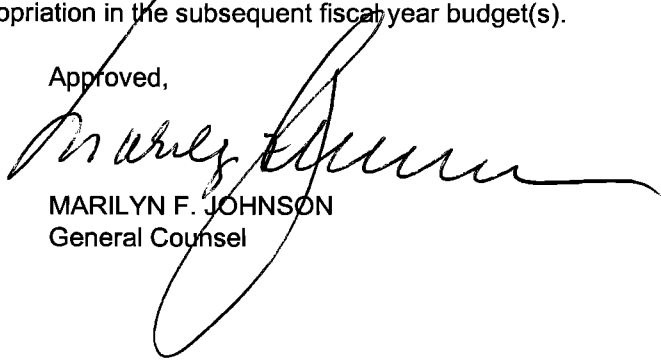 opriation in the subsequent fiscal year budget(s).
Approved,
MARILYN F. JOHNSON
General Counsel